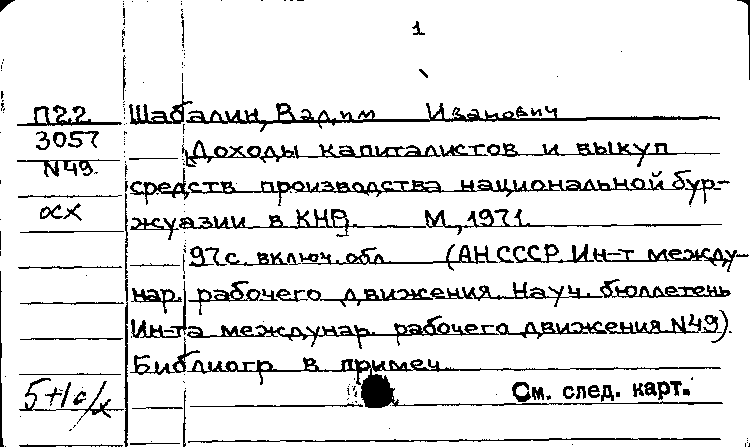 1
П22 Шабалин, Вадим Иванович
3057 Доходы капиталистов и выкуп
N49. средств производства национальной бур-
осх жуазии в КНР. М., 1971.
97с. включ. обл (АН СССР. Ин-т между-
нар. рабочего движения. Науч. бюллетень
Ин-та междунар. рабочего движения N49).
Библиогр в примеч
5+1с/х См. след. карт.